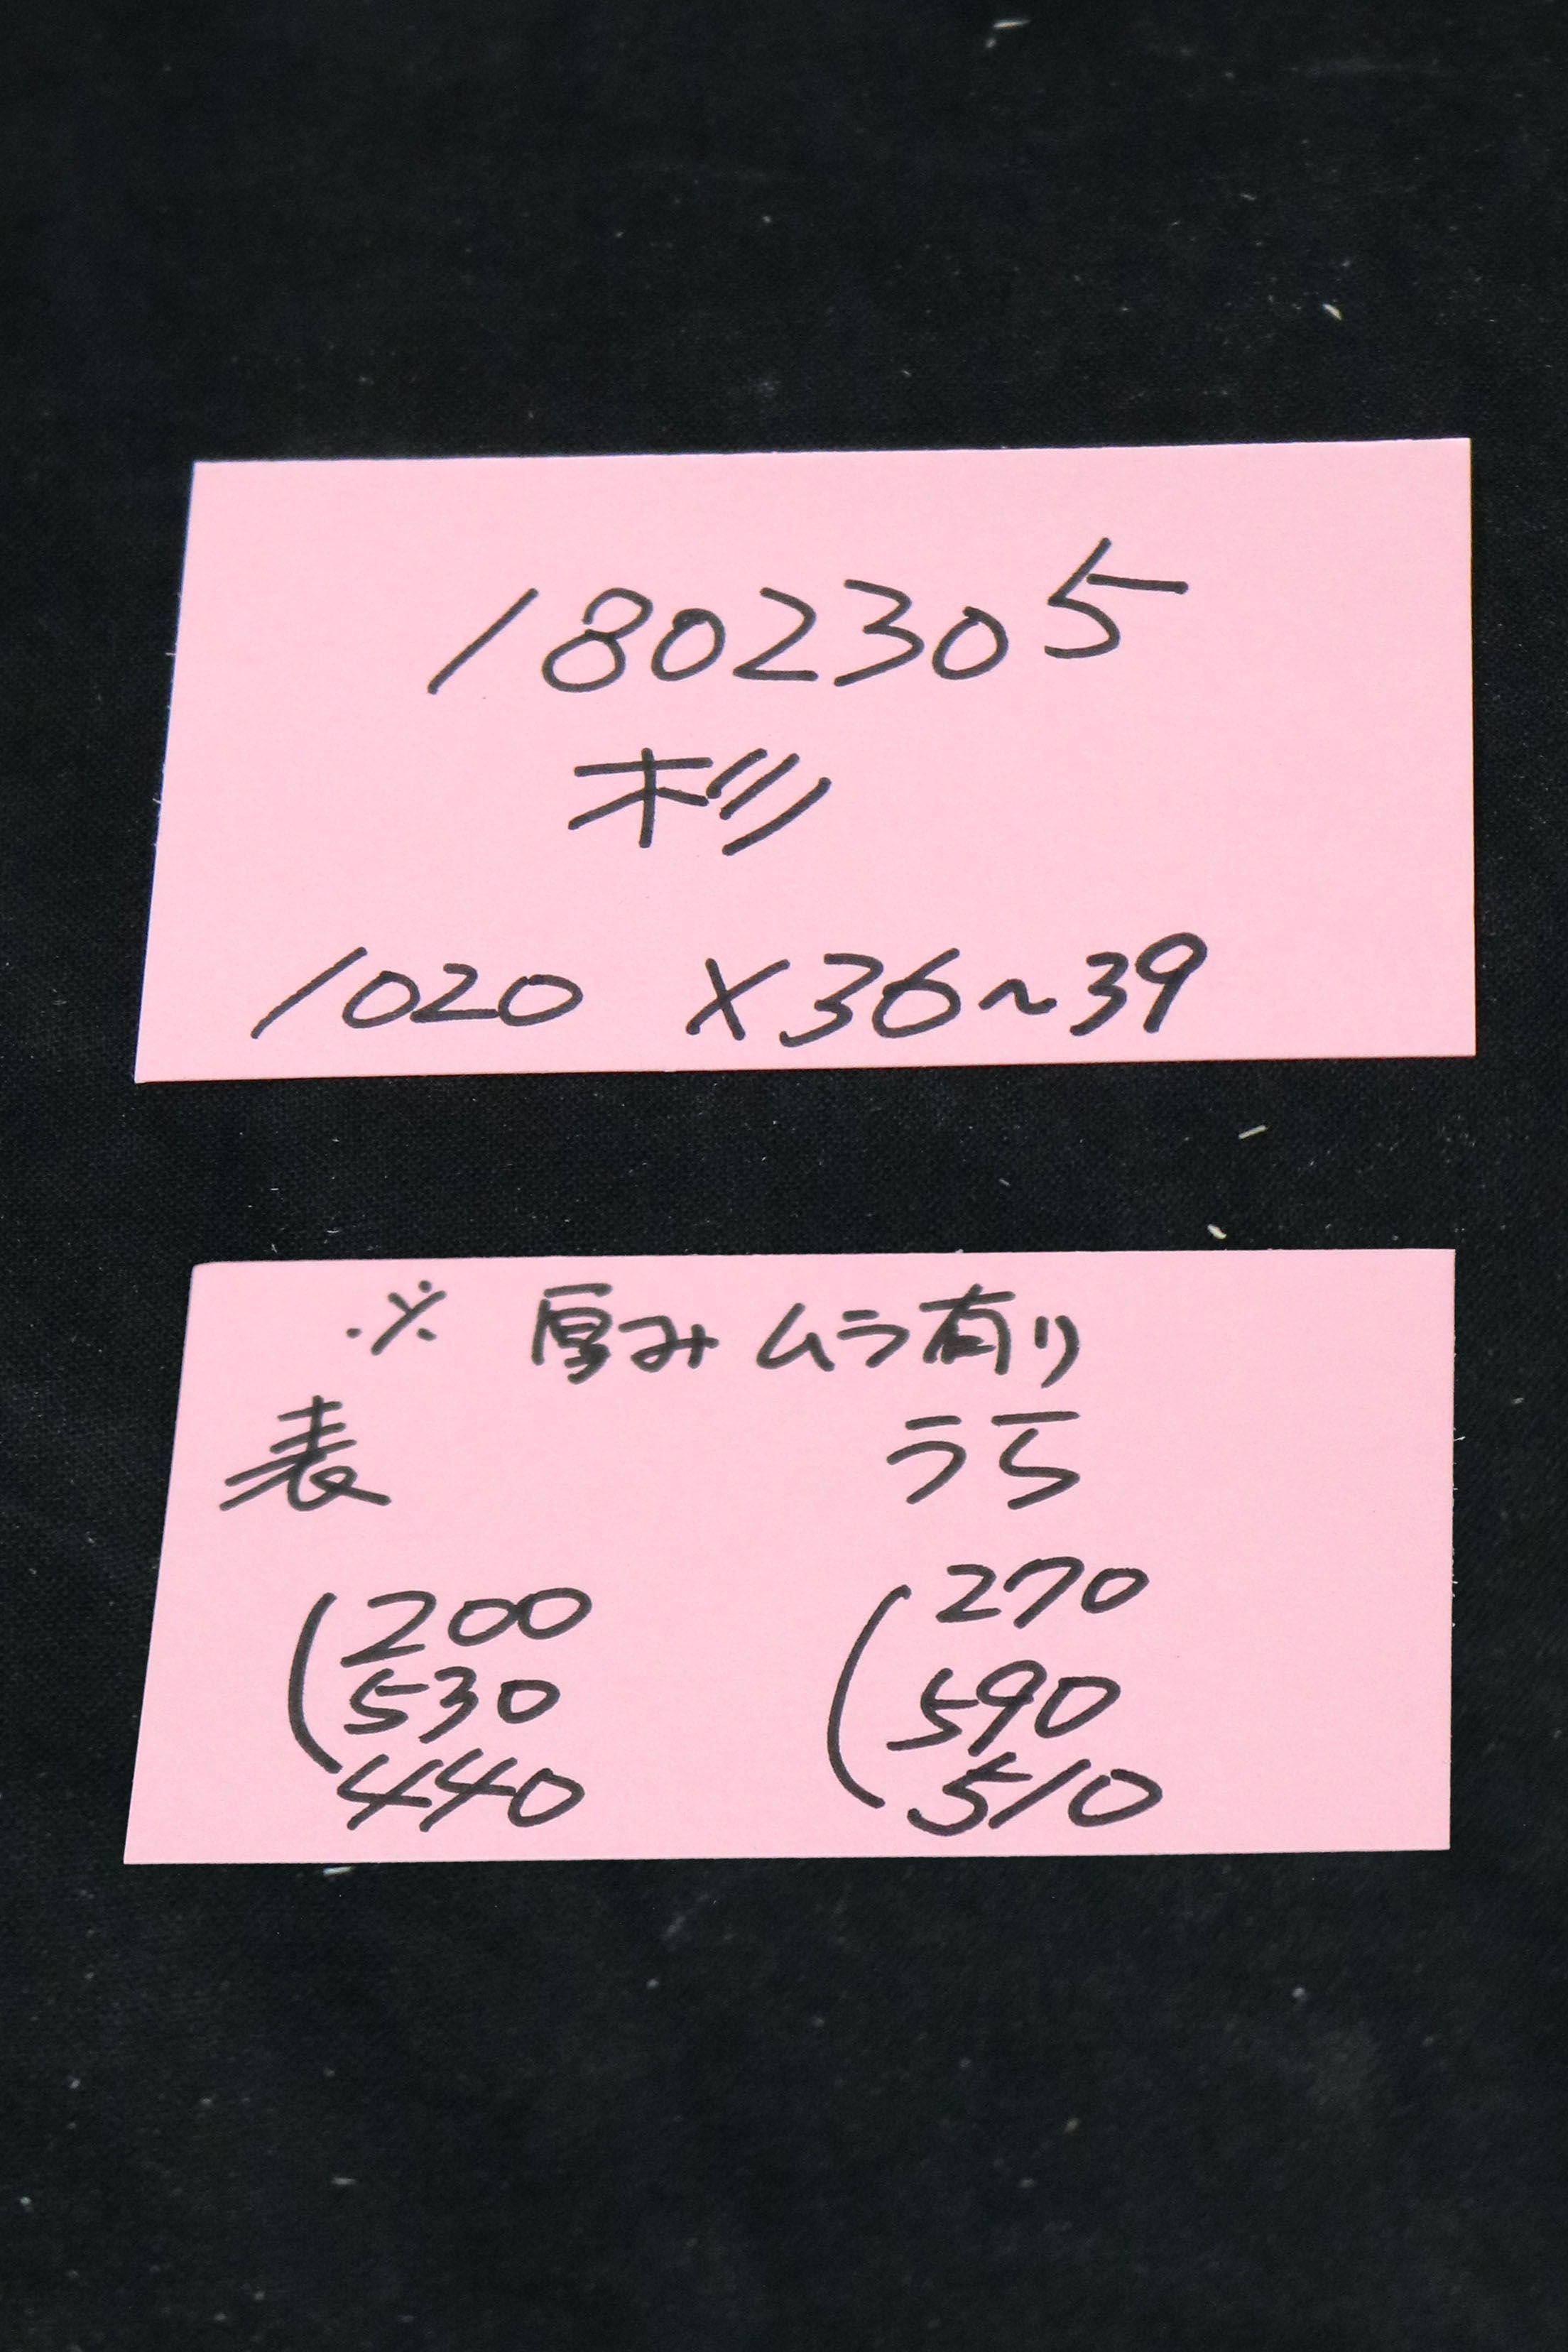 1802305
杉
1020 ×36~39
※ 厚みムラ有り
表 うら
(200 (270
530 590
440 510